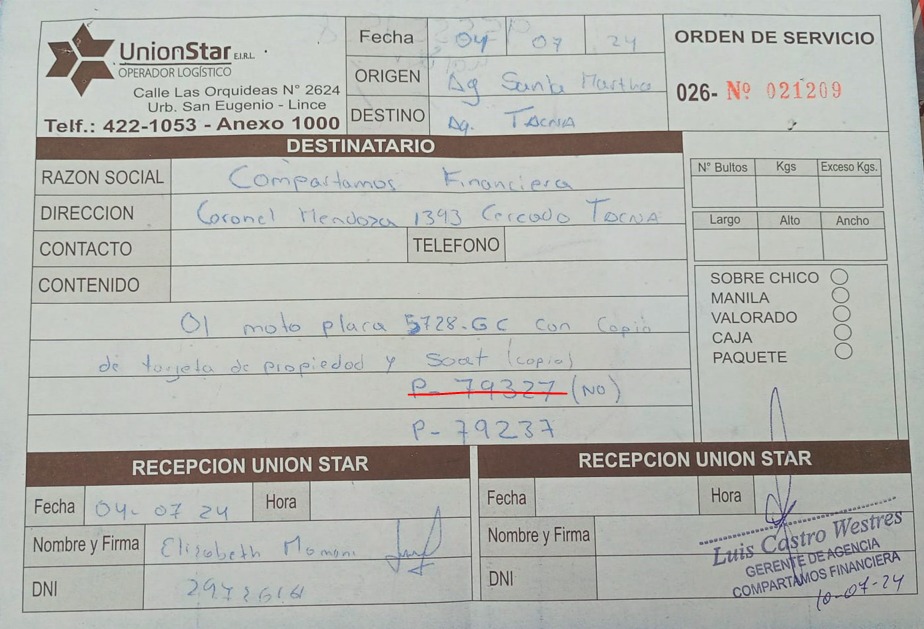 UnionStar E.I.R.L.
OPERADOR LOGÍSTICO
Calle Las Orquideas N° 2624
Urb. San Eugenio - Lince
Telf.: 422-1053 - Anexo 1000
Fecha 04 07 24
ORIGEN Ag Santa Martha
DESTINO Ag. TACNA
ORDEN DE SERVICIO
026- Nº 021209
DESTINATARIO
RAZON SOCIAL Compartamos Financiera
DIRECCION Coronel Mendoza 1393 Cercado TACNA
CONTACTO TELEFONO
CONTENIDO
01 moto placa 5728-GC con copia
de tarjeta de propiedad y Soat (copia)
P- 79327 (NO)
P- 79237
N° Bultos Kgs Exceso Kgs.
Largo Alto Ancho
SOBRE CHICO
MANILA
VALORADO
CAJA
PAQUETE
RECEPCION UNION STAR
Fecha 04-07 24 Hora
Nombre y Firma Elizabeth Mamani
DNI
RECEPCION UNION STAR
Fecha Hora
Nombre y Firma
DNI
Luis Castro Westres
GERENTE DE AGENCIA
COMPARTAMOS FINANCIERA
10-07-24